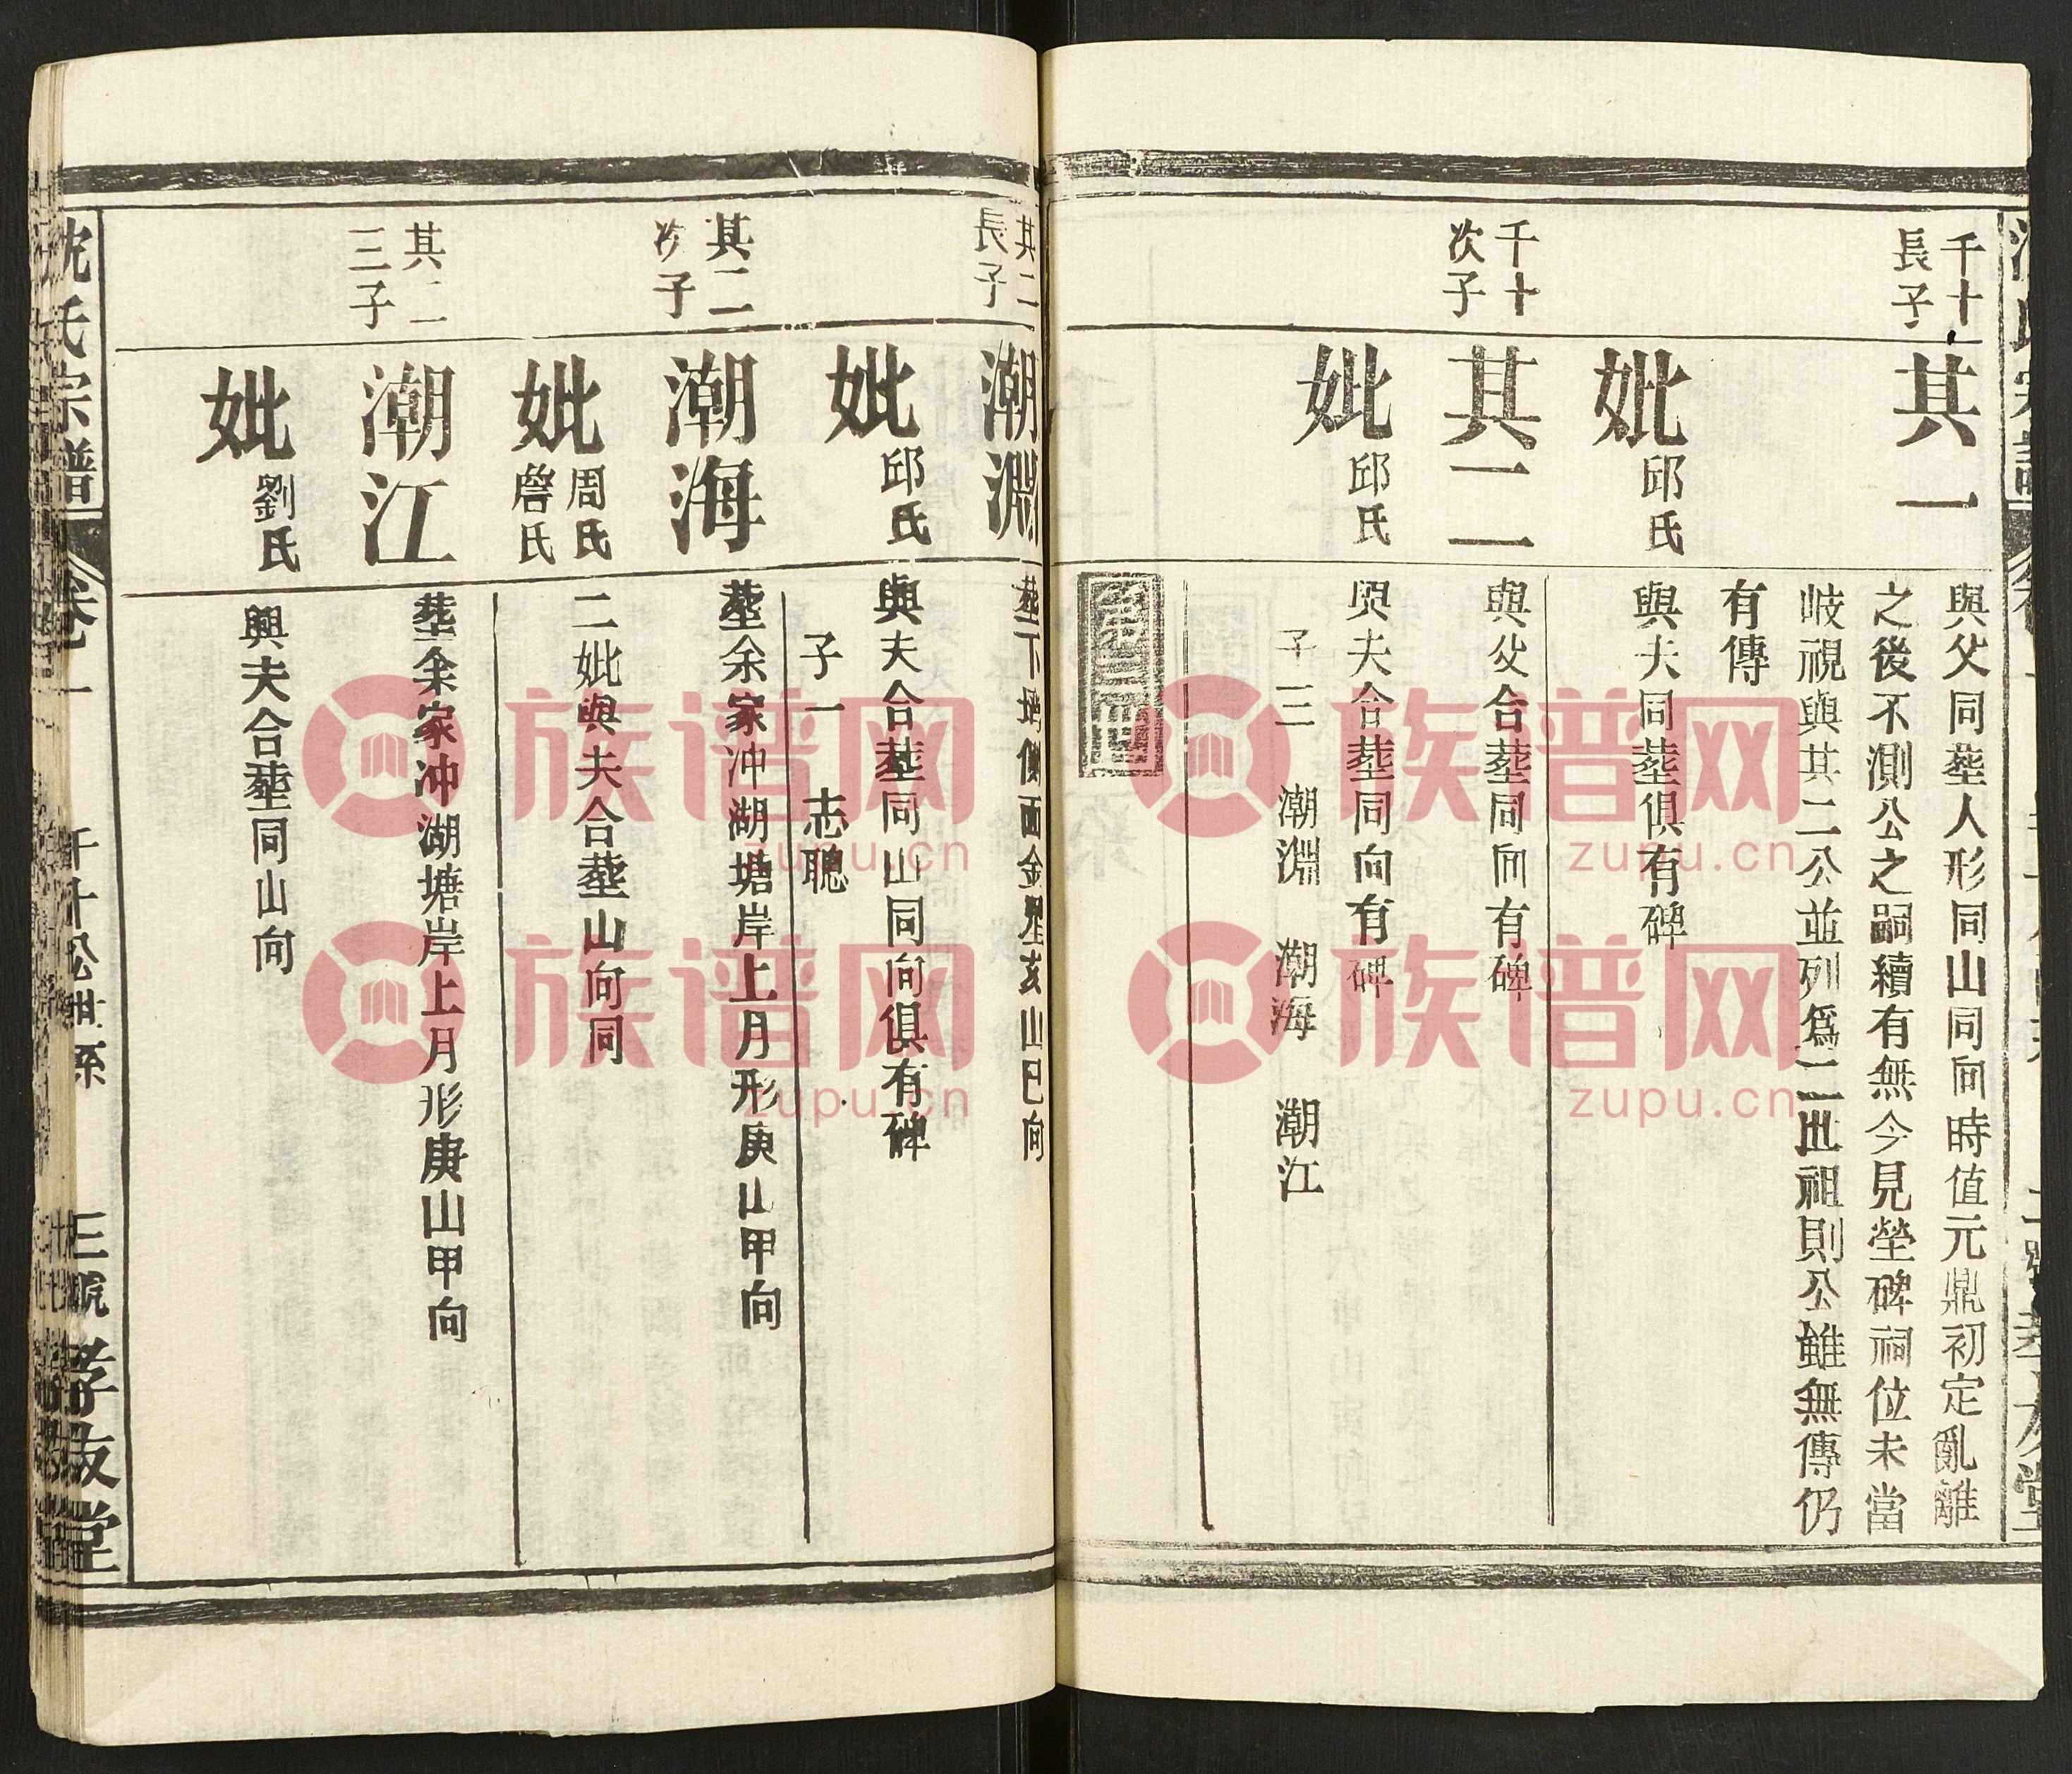 千十
長子
其一
與父同塟人形同山同向時值元鼎初定亂離
之後不測公之嗣續有無今見塋碑祠位未當
岐視與其二公並列爲二世祖則公雖無傳仍
有傳
妣
邱氏
與夫同塟俱有碑
千十
次子
其二
與父合塟同向有碑
妣
邱氏
與夫合塟同向有碑
子三 潮淵 潮海 潮江
第三世
其二
長子
潮淵
塟下塆側面金星亥山巳向
妣
邱氏
與夫合塟同山同向俱有碑
子一 志聰
其二
次子
潮海
塟余家冲湖塘岸上月形庚山甲向
妣
周氏
詹氏
二妣與夫合塟山向同
其二
三子
潮江
塟余家冲湖塘岸上月形庚山甲向
妣
劉氏
與夫合塟同山向
沈氏宗譜
卷一
千十公世系
三號
孝友堂
族谱网
zupu.cn
族谱网
zupu.cn
族谱网
zupu.cn
族谱网
zupu.cn